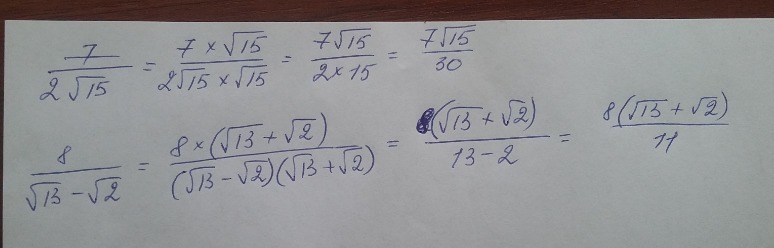 7/(2√15) = (7 × √15)/(2√15 × √15) = 7√15/(2 × 15) = 7√15/30
8/(√13 − √2) = (8 × (√13 + √2))/((√13 − √2)(√13 + √2)) = 8(√13 + √2)/(13 − 2) = 8(√13 + √2)/11